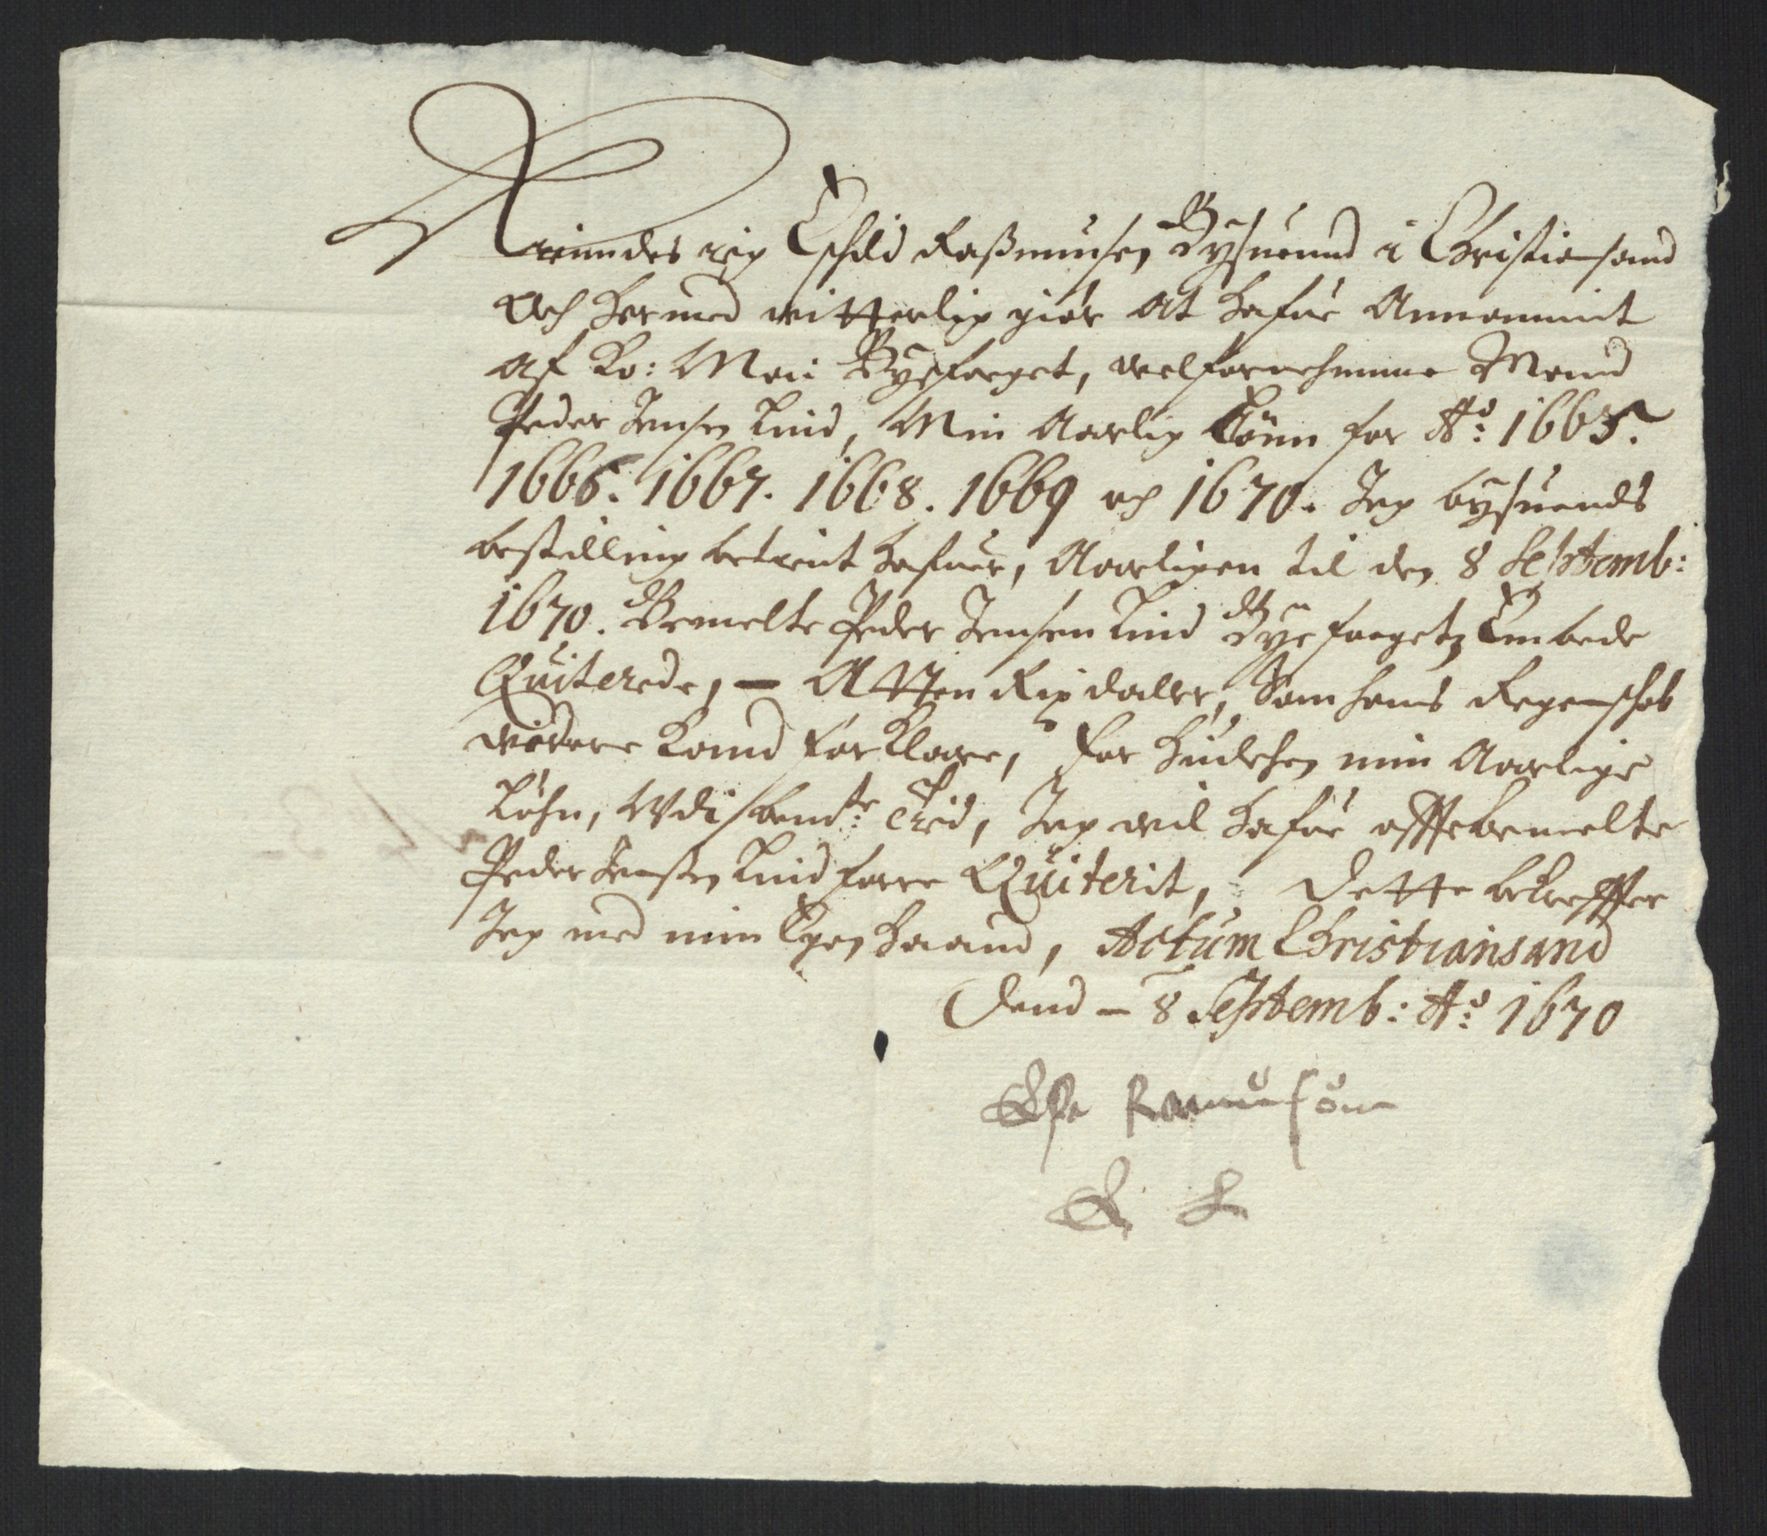 Kiendes ieg Eschild Raßmusen Bysuend i Christiansand
Och hermed witterlig giør at hafue Annammit
Af Ko: Maii Byefoeget, welfornehmme Mand
Peder Jensen Lind, Min Aarlig Lönn for Ao: 1665.
1666. 1667. 1668. 1669 och 1670. Jeg bysuends
bestilling betient hafuer, Aarligen til den 8 Septemb:
1670. Bemelte Peder Jensen Lind Byefoegetz Embede
Quiterede, – Atten Rixdaller, Som hans Regenschab
widere kand forklare, for huilchen min Aarlige
Löhn, Udi bemte: Tiid, Jeg wil hafue offtebemelte
Peder Jensen Lind forre Quiterit, Dette bekreffter
Jeg med min Egen Haand, Actum Christiansand
Dend – 8 Septemb: Ao: 1670
Eske Rasmusön
E R